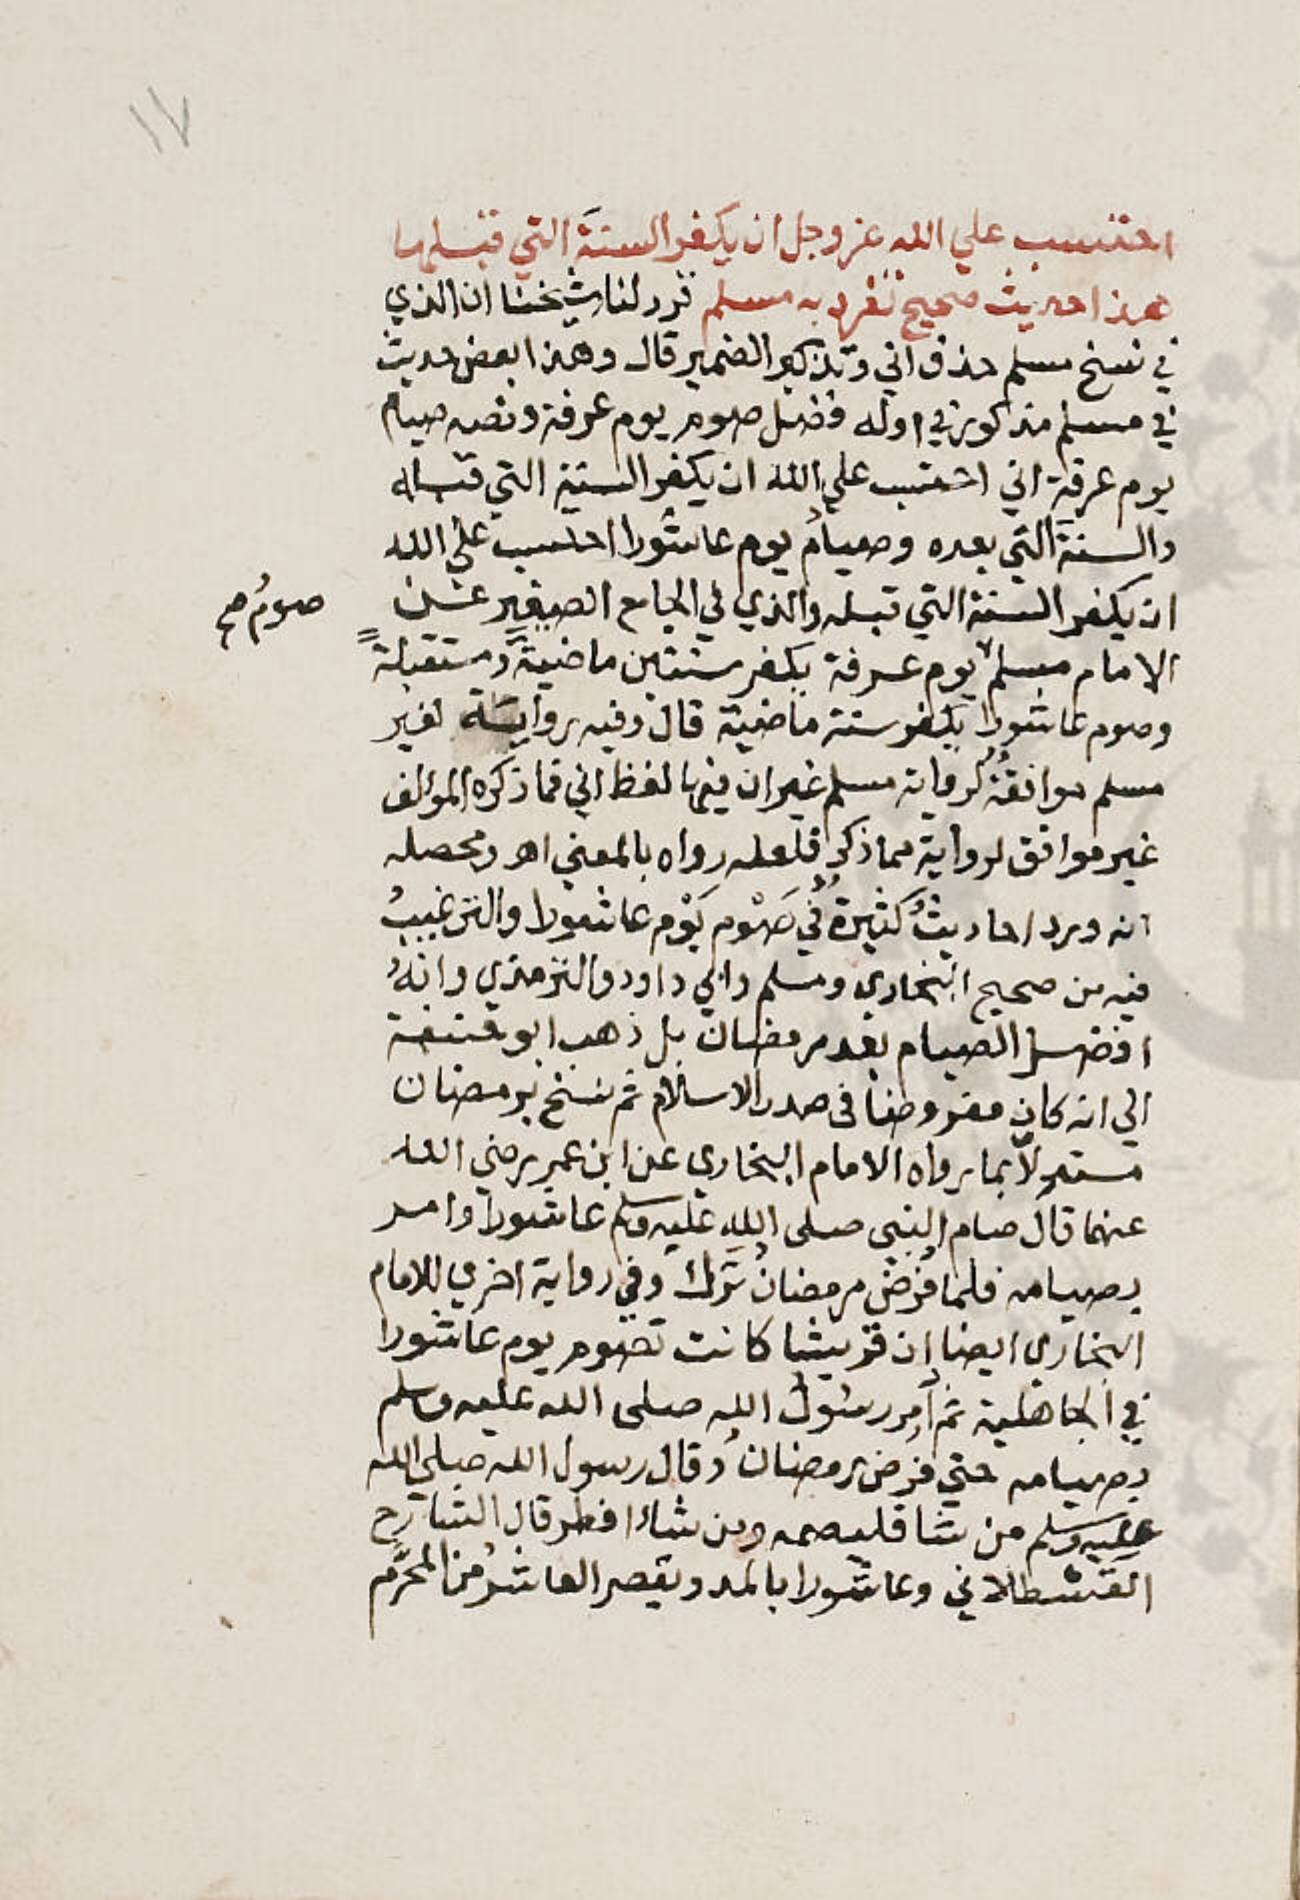 ١٧
احتسب علي الله عز وجل ان يكفر السنة التي قبلها
هذا حديث صحيح تفرد به مسلم قرر لنا شيخنا ان الذي
في نسخ مسلم حذف اني وتذكير الضمير قال وهذا بعض حديث
في مسلم مذكور في اوله فضل صوم يوم عرفة ونصه صيام
يوم عرفة اني احتسب علي الله ان يكفر السنة التي قبله
والسنة التي بعده وصيام يوم عاشورا احتسب علي الله
ان يكفر السنة التي قبله والذي في الجامع الصغير عن
صوم صح
الامام مسلم يوم عرفة يكفر سنتين ماضية ومستقبلة
وصوم عاشورا يكفر سنة ماضية قال وفيه رواية لغير
مسلم موافقة لرواية مسلم غير ان فيها لفظ اني فما ذكره المؤلف
غير موافق لرواية مما ذكر فلعله رواه بالمعني اهـ ومحصله
انه ورد احاديث كثيرة في صوم يوم عاشورا والترغيب
فيه من صحيح البخاري ومسلم وابي داود والترمذي وانه
افضل الصيام بعد رمضان بل ذهب ابو حنيفة
الي انه كان مفروضا في صدر الاسلام ثم نسخ برمضان
مستدلا بما رواه الامام البخاري عن ابن عمر رضي الله
عنهما قال صام النبي صلى الله عليه وسلم عاشورا وامر
بصيامه فلما فرض رمضان ترك وفي رواية اخري للامام
البخاري ايضا ان قريشا كانت تصوم يوم عاشورا
في الجاهلية ثم امر رسول الله صلى الله عليه وسلم
بصيامه حتي فرض رمضان وقال رسول الله صلي الله
عليه وسلم من شا فليصمه ومن شاء افطر قال الشارح
القسطلاني وعاشورا بالمد ويقصر العاشر من المحرم